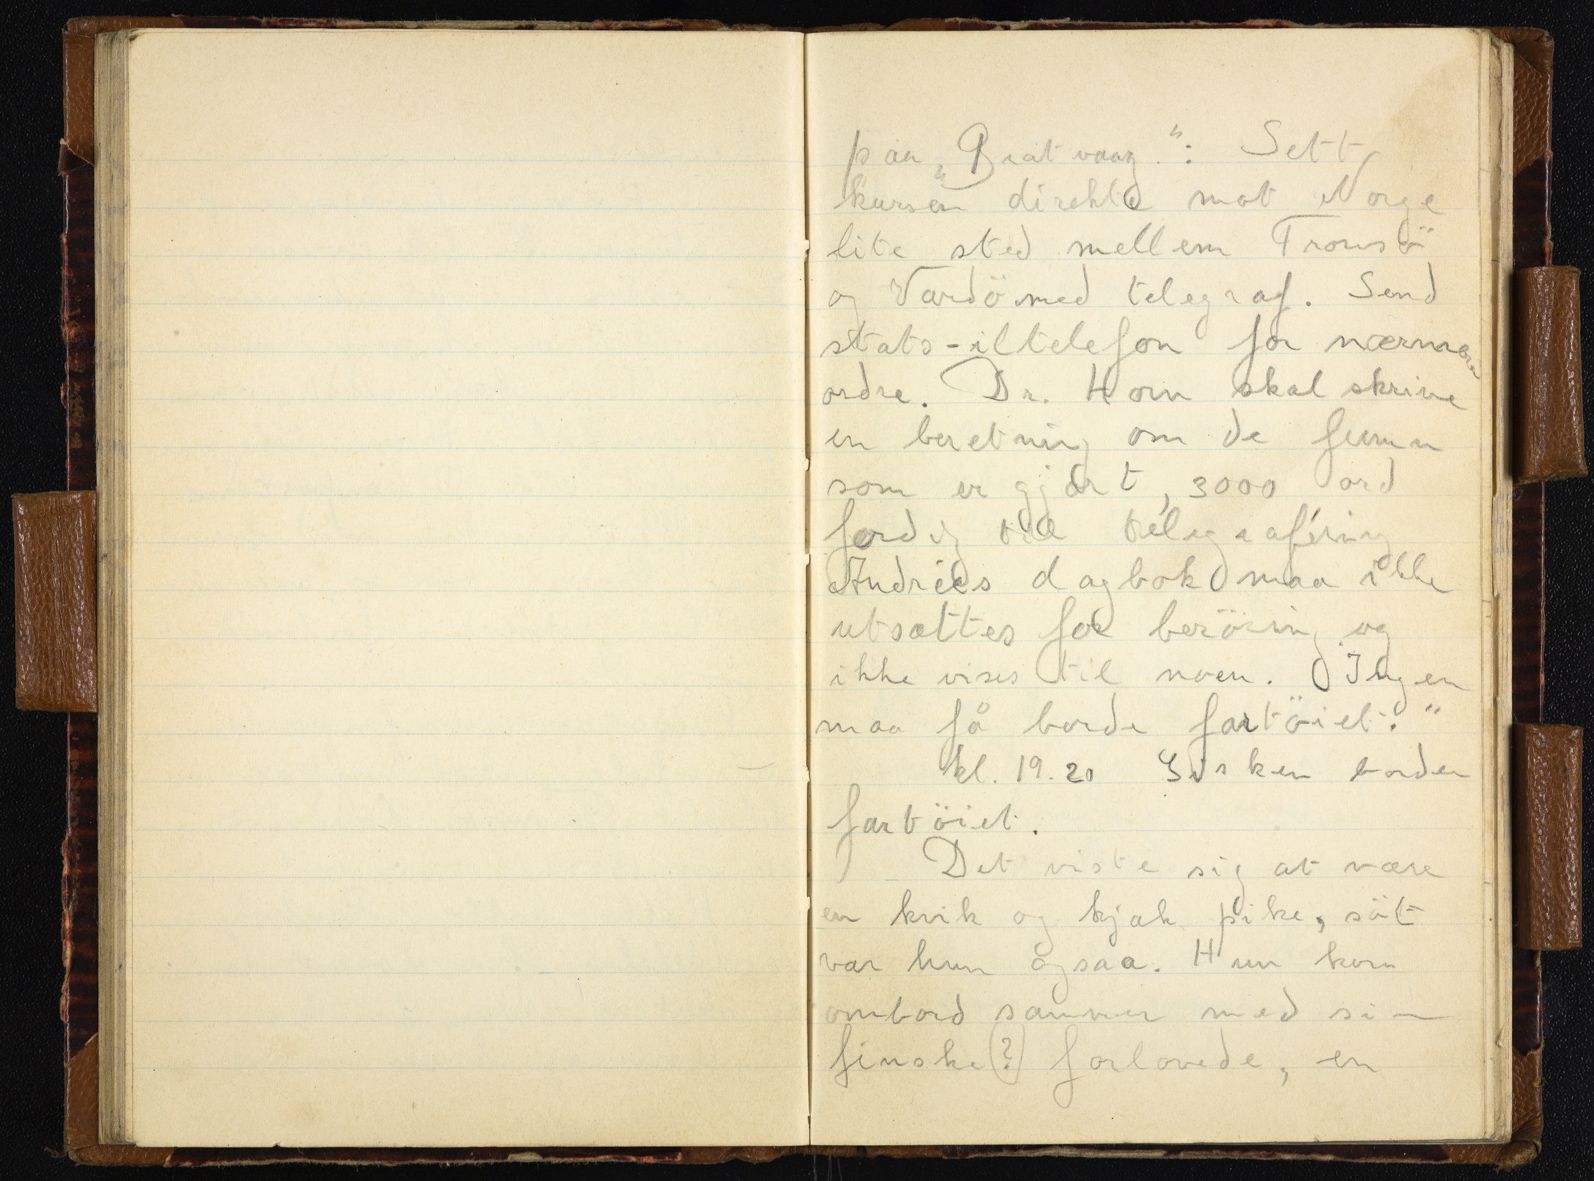 paa „Bratvaag.": Sett
kursen direkte mot Norge
lite sted mellem Tromsö
og Vardö med telegraf. Send
stats-iltelefon for nærmere
ordre. Dr. Horn skal skrive
en beretning om de funn
som er gjort, 3000 ord
ferdig til telegrafering
Andrées dagbok maa ikke
utsættes for beröring og
ikke vises til noen. Ingen
maa få borde fartöiet."
kl. 19.20 border
fartöiet.
Det viste sig at være
en kvik og kjæk pike, söt
var hun ogsaa. Hun kom
ombord sammen med sin
finske(?) forlovede, en